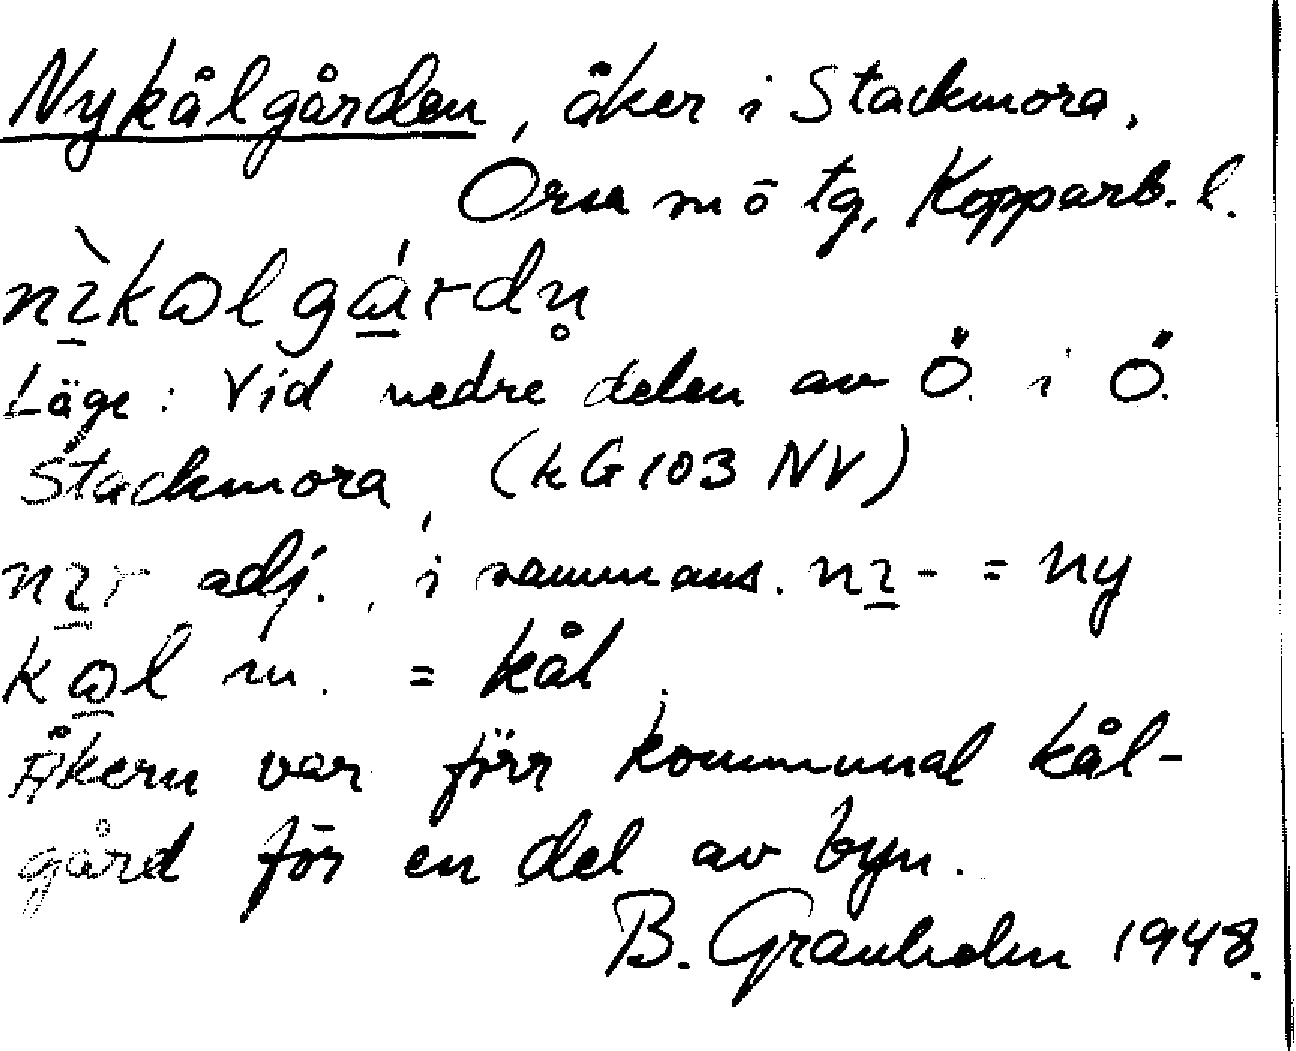 Nykålgården, åker i Stackmora,
Orsa sn ō tg, Kopparb. l.
nɪ̀kɷlgɷ́rdn̥
Läge: Vid nedre delen av Ö. i Ö.
Stackmora, (kG 103 NV)
nɪr adj., i sammans. nɪ- = ny
kɷl m. = kål.
Åkern var förr kommunal kål-
gård för en del av byn.
B. Granholm 1948.